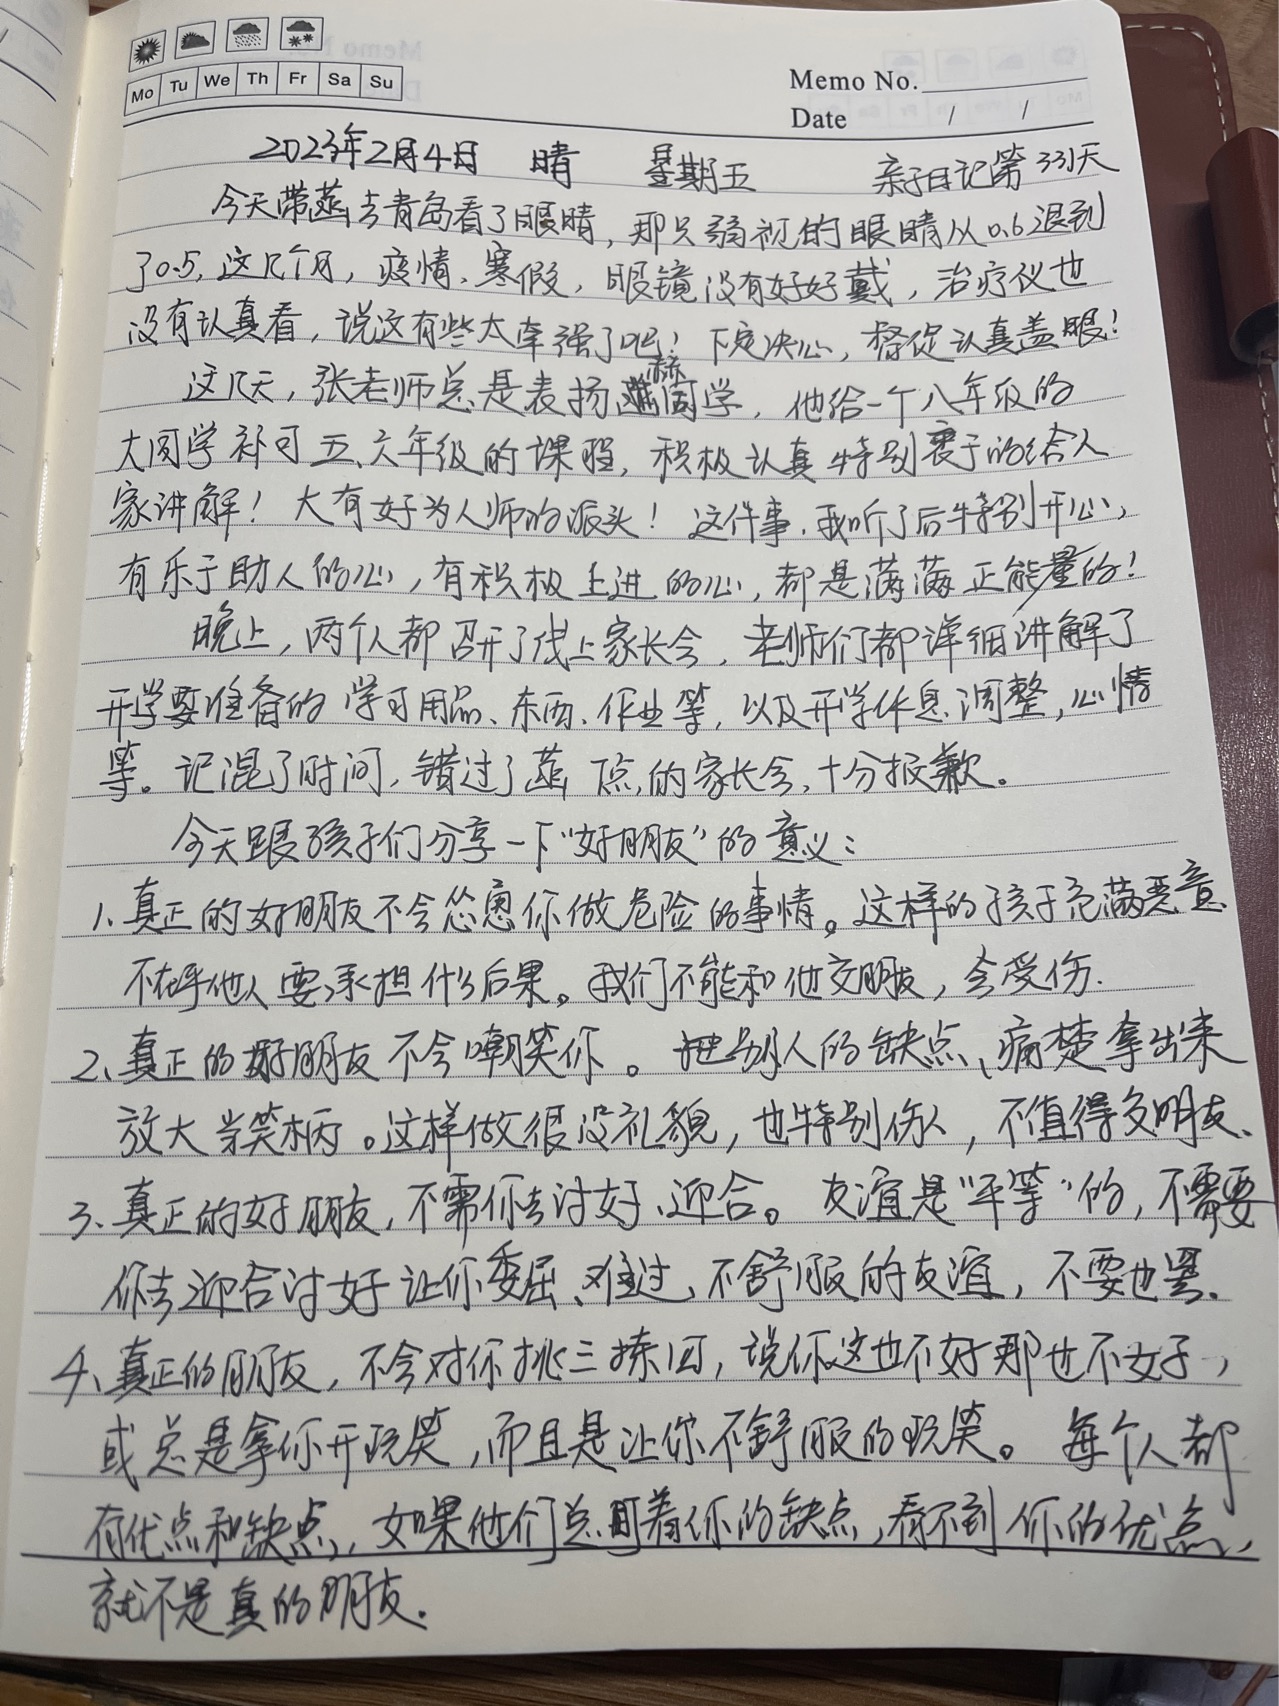 Mo Tu We Th Fr Sa Su
Memo No.
Date / /
2023年2月4日 晴 星期五 亲子日记第331天
今天带蕴去青岛看了眼睛，那只弱视的眼睛从0.6退到
了0.5，这几个月，疫情、寒假，眼镜没有好好戴，治疗仪也
没有认真看，说这有些太牵强了吧！下定决心，督促认真盖眼！
这几天，张老师总是表扬同学，他给一个八年级的
大同学补习五、六年级的课程，积极认真特别裹于的给人
家讲解！大有好为人师的派头！这件事，我听了后特别开心，
有乐于助人的心，有积极上进的心，都是满满正能量的！
晚上，两个人都召开了线上家长会，老师们都详细讲解了
开学要准备的学习用品、东西、作业等，以及开学休息调整，心情
等。记混了时间，错过了蕴 点的家长会，十分抱歉。
今天跟孩子们分享一下“好朋友”的意义：
1、真正的好朋友不会怂恿你做危险的事情。这样的孩子充满恶意
不在乎他人要承担什么后果。我们不能和他交朋友，会受伤.
2、真正的好朋友不会嘲笑你。把别人的缺点、痛楚拿出来
放大当笑柄。这样做很没礼貌，也特别伤人，不值得交朋友、
3、真正的好朋友，不需你去讨好、迎合。友谊是“平等”的，不需要
你去迎合讨好让你委屈、难过，不舒服的友谊，不要也罢.
4、真正的朋友，不会对你挑三拣四，说你这也不好那也不好，
或总是拿你开玩笑，而且是让你不舒服的玩笑。每个人都
有优点和缺点，如果他们总盯着你的缺点，看不到你的优点，
就不是真的朋友.